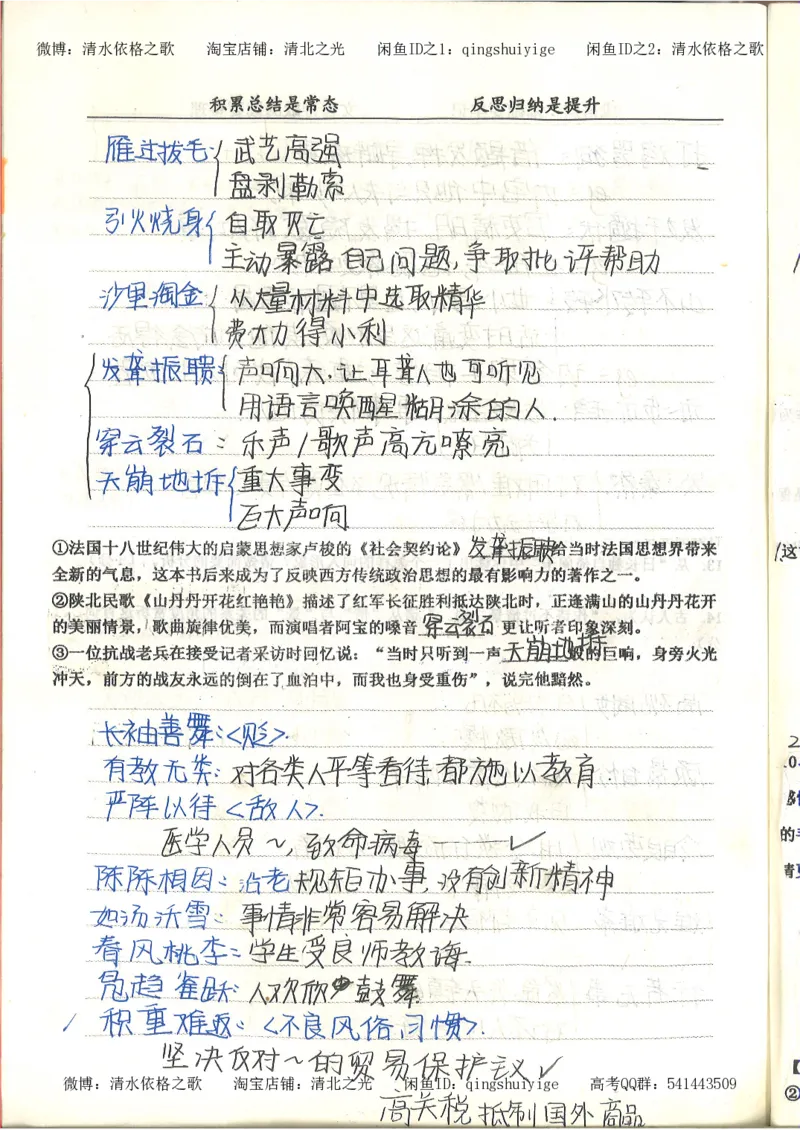 微博：清水依格之歌 淘宝店铺：清北之光 闲鱼ID之1：qingshuiyige 闲鱼ID之2：清水依格之歌
积累总结是常态 反思归纳是提升
雁过拔毛 武艺高强
盘剥勒索
引火烧身 自取灭亡
主动暴露自己问题，争取批评帮助
沙里淘金 从大量材料中选取精华
费大力得小利
发聋振聩 声响大，让耳聋人也可听见
用语言唤醒糊涂的人．
穿云裂石：乐声/歌声高亢嘹亮
天崩地坼 重大事变
巨大声响
①法国十八世纪伟大的启蒙思想家卢梭的《社会契约论》发聋振聩给当时法国思想界带来
全新的气息，这本书后来成为了反映西方传统政治思想的最有影响力的著作之一。
②陕北民歌《山丹丹开花红艳艳》描述了红军长征胜利抵达陕北时，正逢满山的山丹丹花开
的美丽情景，歌曲旋律优美，而演唱者阿宝的嗓音穿云裂石更让听者印象深刻。
③一位抗战老兵在接受记者采访时回忆说：“当时只听到一声天崩地坼般的巨响，身旁火光
冲天，前方的战友永远的倒在了血泊中，而我也身受重伤”，说完他黯然。
长袖善舞：<贬>．
有教无类：对各类人平等看待都施以教育
严阵以待<敌人>．
医学人员～，致命病毒——✓
陈陈相因：沿老规矩办事，没有创新精神
如汤沃雪：事情非常容易解决
春风桃李：学生受良师教诲．
凫趋雀跃：人欢欣鼓舞
积重难返：<不良风俗习惯>．
坚决反对～的贸易保护主义✓
微博：清水依格之歌 淘宝店铺：清北之光 闲鱼ID：qingshuiyige 高考QQ群：541443509
高关税抵制国外商品